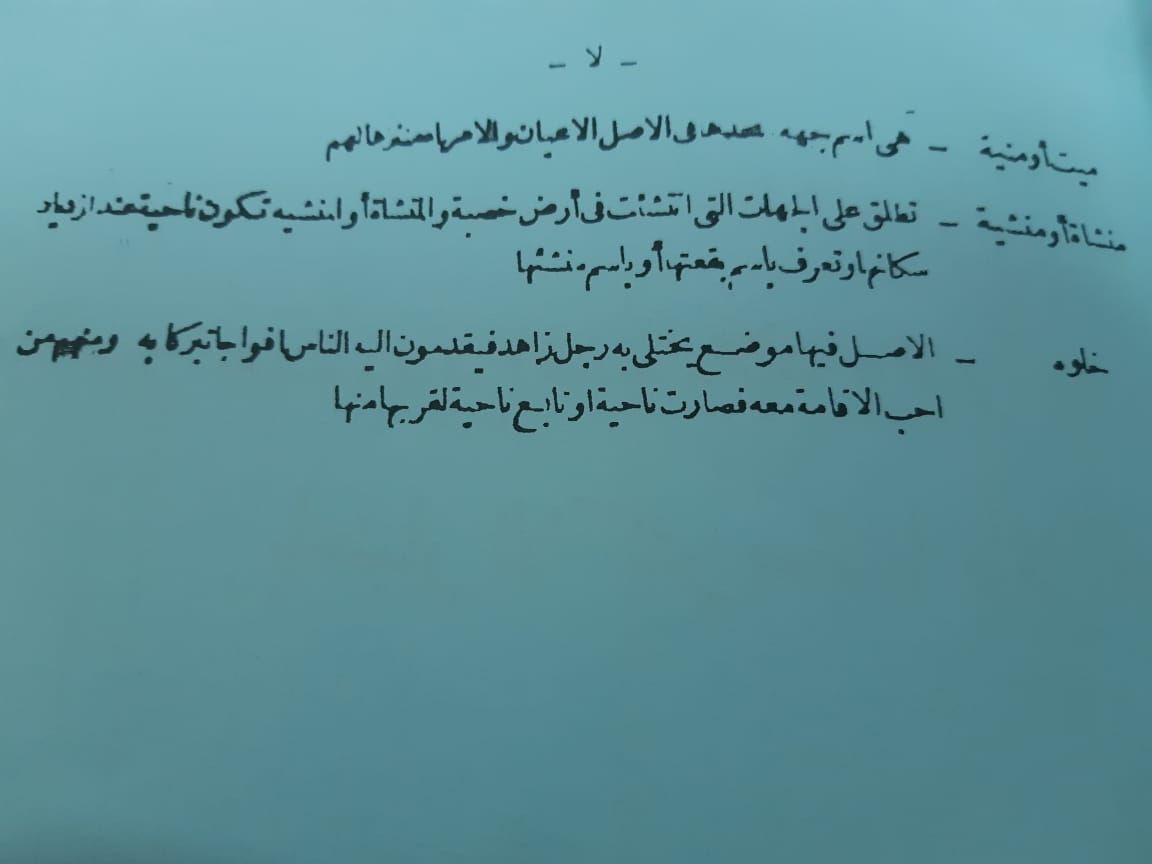 - لا -
ميت أو منية - هى اسم جهه فى الاصل الاعيان والامراء
منشاة أو منشية - تطلق على الجهات التى انتشئت فى أرض خصبة والمنشاة أو المنشيه تكون ناحية عند ازدياد
سكانها وتعرف باسم بقعتها أو باسم منشئها
خلوه - الاصل فيها موضع يختلى به رجل زاهد فيقدمون اليه الناس افواجا تبركا به ومنهم من
احب الاقامة معه فصارت ناحية او تابع ناحية لقربها منها